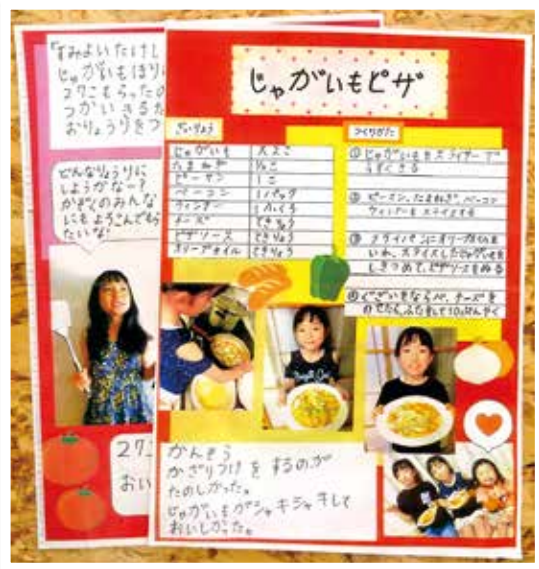 「すみよいたけし
じゃがいもほりに
27こもらったの
つかいきるた
おりょうりをつ
どんなりょうりに
しようかなー?
かぞくのみんな
にもよろこんでもら
たいな!
27こ
おい
じゃがいもピザ
ざいりょう
じゃがいも 大2こ
たまねぎ 1/2こ
ピーマン 1こ
ベーコン 1パック
ウィンナー 1ふくろ
チーズ てきりょう
ピザソース てきりょう
オリーブオイル てきりょう
つくりかた
① じゃがいもをスライサーで
うすくきる
② ピーマン、たまねぎ、ベーコン
ウィンナーをスライスする
③ フライパンにオリーブオイルを
いれ、スライスしたじゃがいもを
しきつめて、ピザソースをぬる
④ ぐざいをならべ、チーズを
のせたら、ふたをして10ぷんやく
かんそう
かざりつけをするのが
たのしかった。
じゃがいもがシャキシャキして
おいしかった。